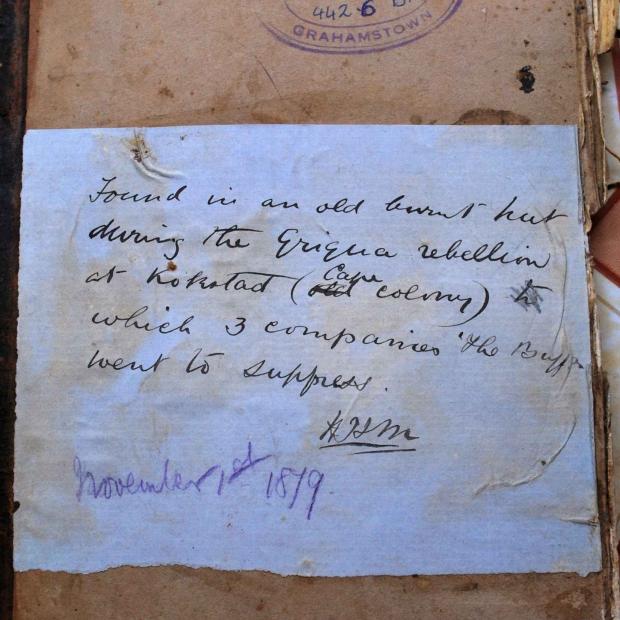 442 6 D.
GRAHAMSTOWN
Found in an old burnt hut
during the Griqua rebellion
at Kokstad (Cape colony)
which 3 companies 'The Buffs
went to suppress.
HHM
November 1st 1879.